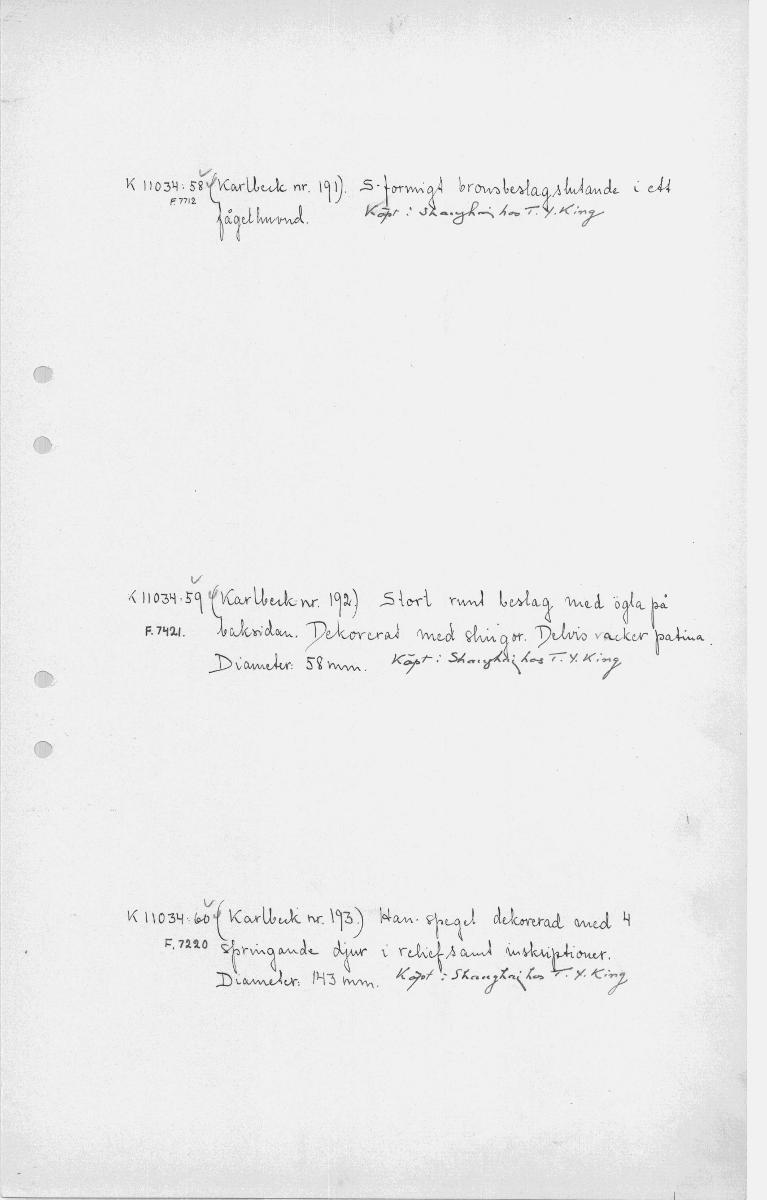 K 11034:58 (Karlbeck nr. 191). S-formigt bronsbeslag, slutande i ett
F.7712 fågelhuvud. Köpt i Shanghai hos T. Y. King
K 11034:59 (Karlbeck nr. 192) Stort runt beslag med ögla på
F.7421. baksidan. Dekorerat med slingor. Delvis vacker patina.
Diameter: 58 mm. Köpt i Shanghai hos T. Y. King
K 11034:60 (Karlbeck nr. 193.) Han-spegel dekorerad med 4
F.7220 springande djur i relief samt inskriptioner.
Diameter: 143 mm. Köpt i Shanghai hos T. Y. King